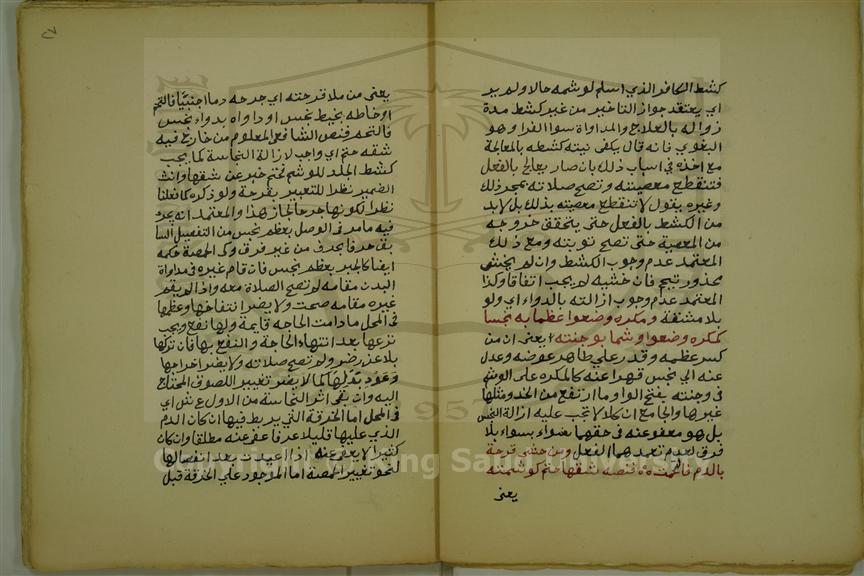 كشط الكافر الذي اسلم لوشمه حالا ولم ير
اي يعتقد جواز التاخير من غير كشط مدة
زواله بالعلاج والمداواة سوا الفرا وهو
البغوي فانه قال يكفي نيته كشطه بالمعالجة
مع اخذه في اسباب ذلك بان صار يعالج بالفعل
فتنقطع معصيته وتصح صلاته بمجرد ذلك
وغيره يقول لا تنقطع معصيته بذلك بل لا بد
من الكشط بالفعل حتى يتحقق خروجه
من المعصية حتى تصح توبته ومع ذلك
المعتمد عدم وجوب الكشط وان لم يخش
محذور تيمم فان خشيه لم يجب اتفاقا وكذا
المعتمد عدم وجوب ازالته بالدواء اي ولو
بلا مشقة ومكره وضعوا عظما به نجسا
كمكره وضعوا وشما بوجنته ايعني ان من
كسر عظمه وقدر على طاهر عوضه وعدل
عنه الى نجس قهرا عنه كالمكره على الوشم
في وجنته بفتح الواو ما ارتفع من الخد ومثلها
غيرها والجامع ان كلا لا تجب عليه ازالة النجس
بل هو معفو عنه في حقهما سواء بسواء بلا
فرق لعدم تعديهما الفعل ومن حشى قرحة
بالدم فالتحمت فنصه شقها حتم كوشمته
يعني
يعني من ملا قرحته اي جرحه دما اجنبيا فالتحم
او خاطه بخيط نجس او داواه بدواء نجس
فالتحم فنص الشافعي المعلوم من خارج فيه
شقه حتم اي واجب لازالة النجاسة كما يجب
كشط الجلد للوشم فحتم خبر عن شقها وانث
الضمير نظرا للتعبير بقرحة ولو ذكره كما فعلنا
نظرا لكونها جرحا لجاز هذا والمعتمد انه يجري
فيه ما مر في الوصل بعظم نجس من التفصيل السا
بق حرفا بحرف من غير فرق وكي الحمصة حكمه
ايضا كالجبر بعظم نجس فان قام غيره في مداواة
البدن مقامه لم تصح الصلاة معه واذا لم يقم
غيره مقامه صحت ولا يضر انتفاخها وعظمها
في المحل ما دامت الحاجه قايمة ولها نفع ويجب
نزعها بعد انتهاء الحاجة والنفع بها فان تركها
بلا عذر ضر ولم تصح صلاته ولا يضر اخراجها
وعود بدلها كما لا يضر تغيير اللصوق المحتاج
اليه وان بقي اثر النجاسة من الاول
في المحل اما الخرقة التي يربط فيها ان كان الدم
الذي عليها قليلا عرفا عفو عنه مطلقا وان كان
كثيرا لا يعفو عنه اذا اعيدت بعد انفصالها
لنحو تغيير الحمصة اما الموجود على الخرقة قبل